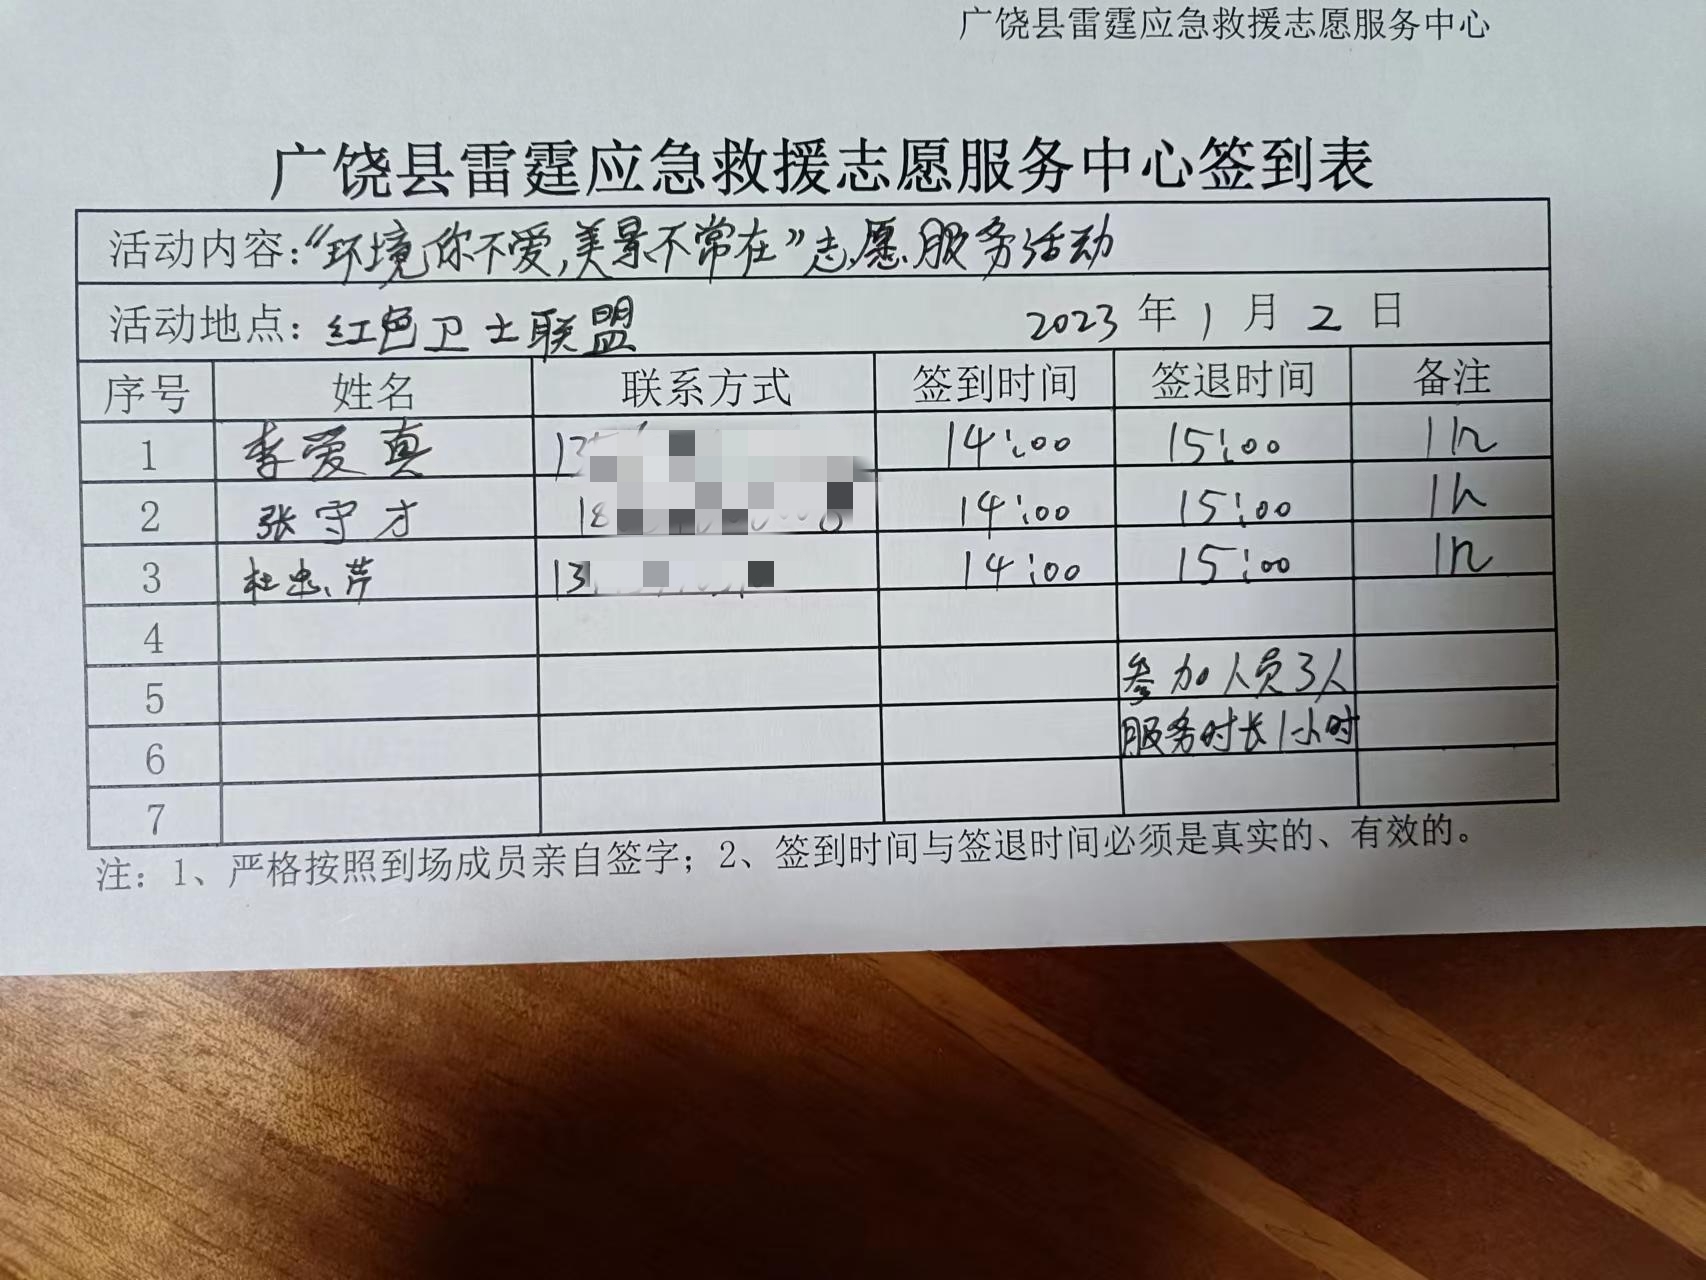 广饶县雷霆应急救援志愿服务中心
广饶县雷霆应急救援志愿服务中心签到表
活动内容:“环境你不爱,美景不常在”志愿服务活动
活动地点: 红色卫士联盟 2023 年 1 月 2 日
序号 姓名 联系方式 签到时间 签退时间 备注
1 李爱真 13 14:00 15:00 1h
2 张守才 18 14:00 15:00 1h
3 杜忠芹 13 14:00 15:00 1h
4
5 参加人员3人
6 服务时长1小时
7
注：1、严格按照到场成员亲自签字；2、签到时间与签退时间必须是真实的、有效的。